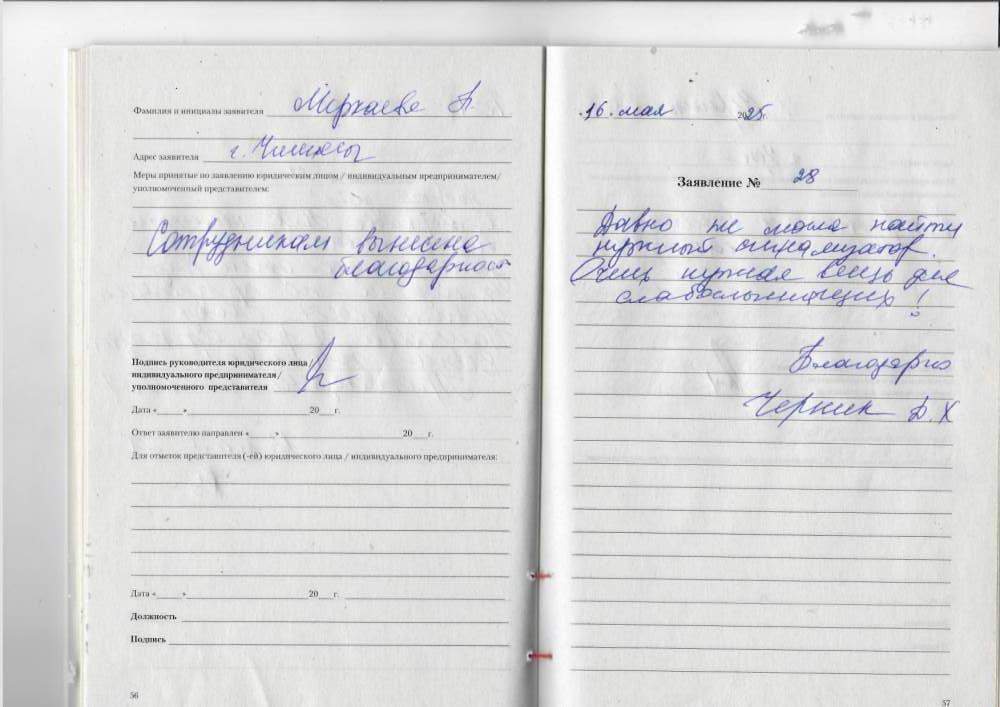 Фамилия и инициалы заявителя Мерхаева Б.
Адрес заявителя г.
Меры принятые по заявлению юридическим лицом / индивидуальным предпринимателем/
уполномоченный представителем:
Сотрудникам вынесена
благодарность
Подпись руководителя юридического лица/
индивидуального предпринимателя/
уполномоченного представителя
Дата «____»____________20___г.
Ответ заявителю направлен «____»____________20___г.
Для отметок представителя (-ей) юридического лица / индивидуального предпринимателя:
Дата «____»____________20___г.
Должность
Подпись
56
«16» мая 2025г.
Заявление № 28
Давно не могла найти
нужный
Очень нужная вещь для
слабослышащих!
Благодарю
Черник Д.Х
57